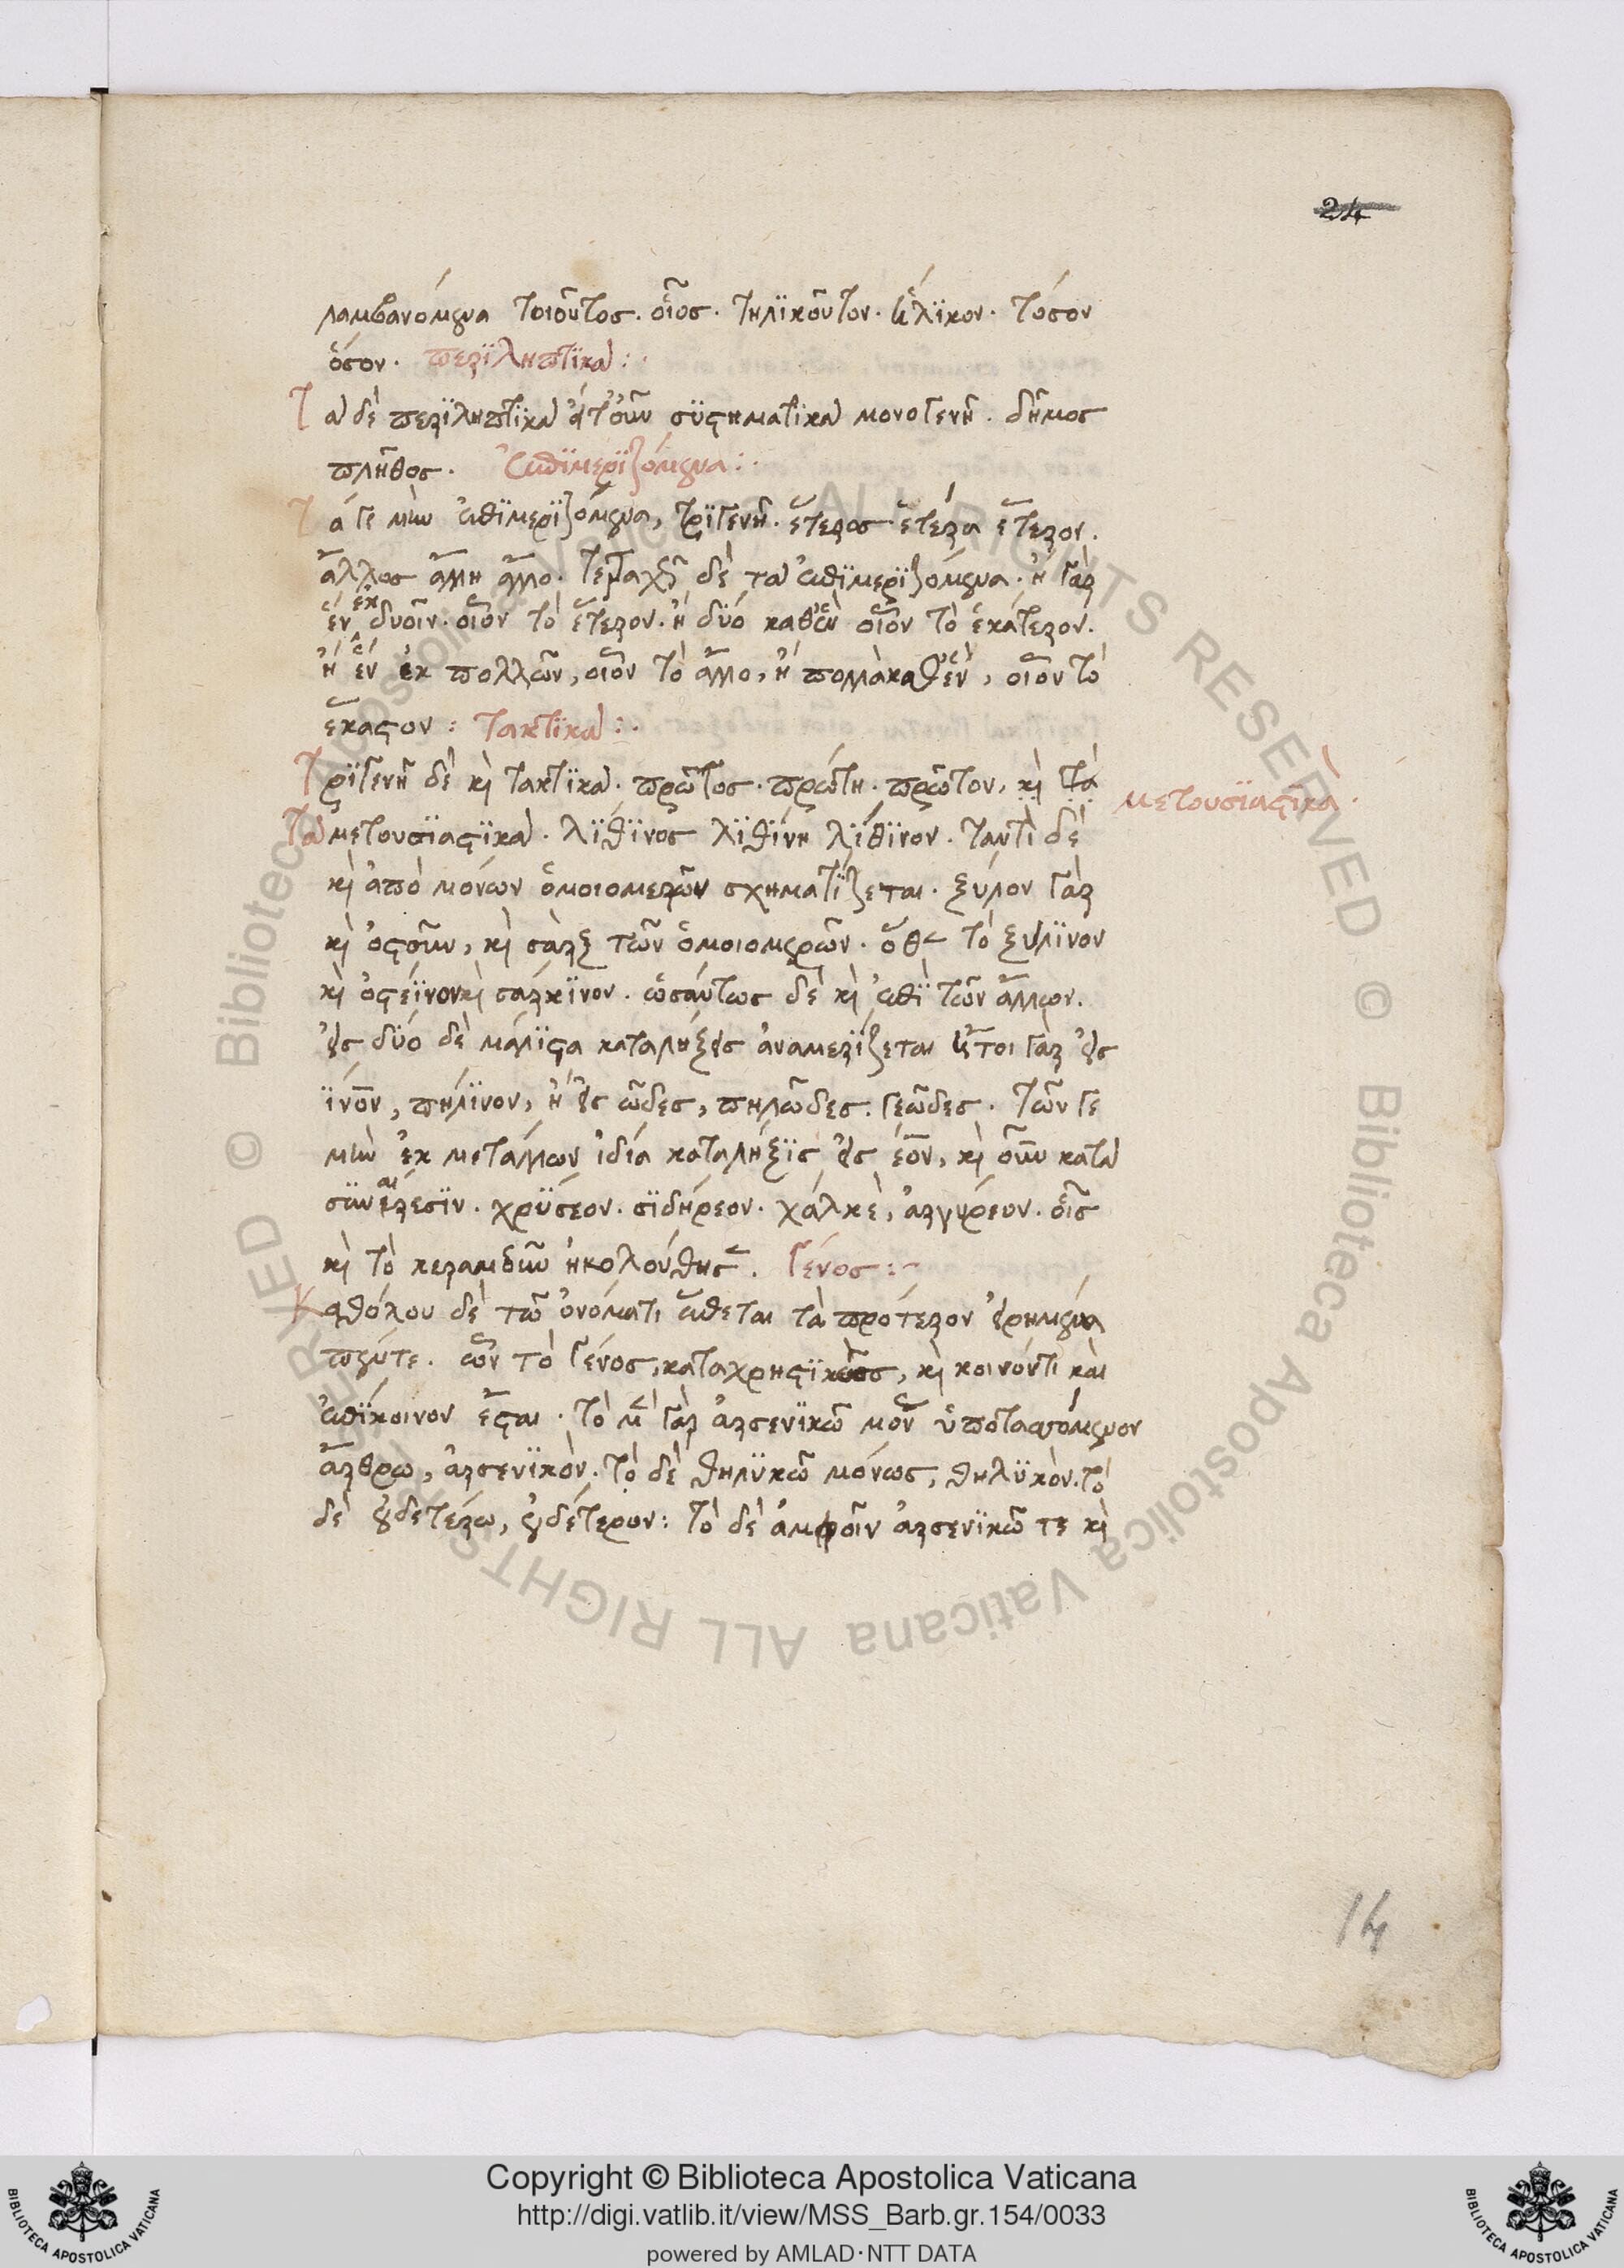 24
λαμβανόμενα τοιοῦτος. οἷος. τηλϊκοῦτον. ἡλίκον. τόσον
ὅσον. περϊληπτϊκὰ:·
Τὰ δὲ περϊληπτϊκὰ εἴτ' οὖν συστηματϊκὰ μονογενῆ. δῆμος
πλῆθος. Ἐπϊμερϊζόμενα:·
Τά γε μὴν ἐπϊμερϊζόμενα, τρϊγενῆ. ἕτερος ἑτέρα ἕτερον.
ἄλλος ἄλλη ἄλλο. τετραχῆ δὲ τὰ ἐπϊμερϊζόμενα. ἢ γὰρ
ἓν ἐκ δυοῖν. οἷον τὸ ἕτερον. ἢ δύο καθ' ἓν οἷον τὸ ἑκάτερον.
ἢ ἓν ἐκ πολλῶν, οἷον τὸ ἄλλο, ἢ πολλὰ καθ' ἓν, οἷον τὸ
ἕκαστον: τακτϊκὰ:·
Τρϊγενῆ δὲ καὶ τακτϊκὰ. πρῶτος. πρώτη. πρῶτον, καὶ τὰ
μετουσϊαστϊκὰ.
Τὰ μετουσϊαστϊκὰ. λΐθϊνος λϊθίνη λΐθϊνον. ταυτὶ δὲ
καὶ ἀπὸ μόνων ὁμοιομερῶν σχηματΐζεται. ξύλον γὰρ
καὶ ὀστοῦν, καὶ σὰρξ τῶν ὁμοιομερῶν. ὅθεν τὸ ξύλϊνον
καὶ ὀστέϊνον καὶ σάρκϊνον. ὡσαύτως δὲ καὶ ἐπὶ τῶν ἄλλων.
εἰς δύο δὲ μάλϊστα καταλήξεις ἀναμερΐζεται ἤτοι γὰρ εἰς
ΐνον, πήλϊνον, ἢ εἰς ῶδες, πηλῶδες. γεῶδες. τῶν γε
μὴν ἐκ μετάλλων ἰδία κατάληξϊς εἰς έον, καὶ οῦν κατὰ
συναίρεσϊν. χρύσεον. σϊδήρεον. χάλκεον, ἀργύρεον. οἷς
καὶ τὸ κεραμεοῦν ἠκολούθησεν. Γένος:·
Καθόλου δὲ τῶ ὀνόματι ἕπεται τὰ πρότερον εἰρημένα
πέντε. ὧν τὸ γένος, καταχρηστϊκῶς, καὶ κοινόν τι καὶ
ἐπΐκοινον ἔσται. τὸ μὲν γὰρ ἀρσενϊκῶ μόνον ὑποτασσόμενον
ἄρθρω, ἀρσενϊκὸν. τὸ δὲ θηλυκῶ μόνως, θηλυκὸν. τὸ
δὲ οὐδετέρω, οὐδέτερον: τὸ δὲ ἀμφοῖν ἀρσενϊκῶ τε καὶ
14
© Biblioteca Apostolica Vaticana ALL RIGHTS RESERVED © Biblioteca Apostolica Vaticana ALL RIGHTS RESERVED
Copyright © Biblioteca Apostolica Vaticana
http://digi.vatlib.it/view/MSS_Barb.gr.154/0033
powered by AMLAD·NTT DATA
BIBLIOTECA APOSTOLICA VATICANA
BIBLIOTECA APOSTOLICA VATICANA